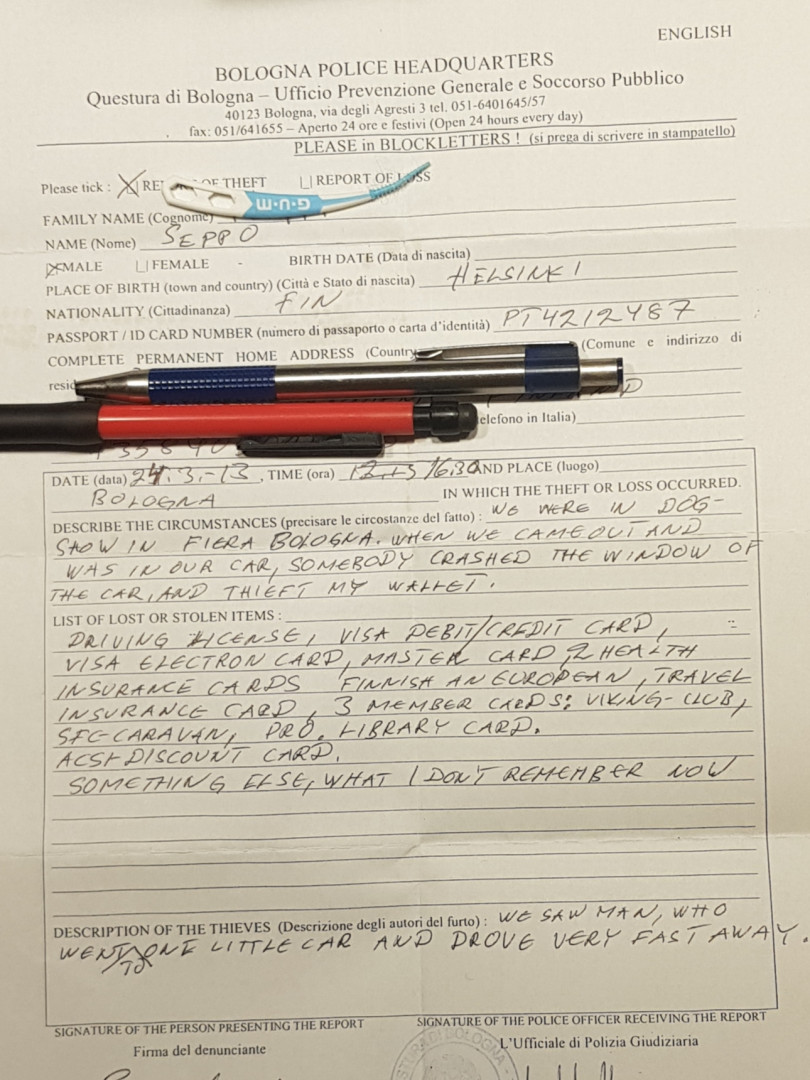 ENGLISH
BOLOGNA POLICE HEADQUARTERS
Questura di Bologna – Ufficio Prevenzione Generale e Soccorso Pubblico
40123 Bologna, via degli Agresti 3 tel. 051-6401645/57
fax: 051/641655 – Aperto 24 ore e festivi (Open 24 hours every day)
PLEASE in BLOCKLETTERS ! (si prega di scrivere in stampatello)
Please tick : OF THEFT REPORT OF LOSS
G·U·M
FAMILY NAME (Cognome)
NAME (Nome) SEPPO
MALE FEMALE - BIRTH DATE (Data di nascita)
PLACE OF BIRTH (town and country) (Città e Stato di nascita) HELSINKI
NATIONALITY (Cittadinanza) FIN
PASSPORT / ID CARD NUMBER (numero di passaporto o carta d'identità) PT4212487
COMPLETE PERMANENT HOME ADDRESS (Country (Comune e indirizzo di
elefono in Italia)
DATE (data) 24.3.-13, TIME (ora) 16.30 AND PLACE (luogo)
BOLOGNA IN WHICH THE THEFT OR LOSS OCCURRED.
DESCRIBE THE CIRCUMSTANCES (precisare le circostanze del fatto) : WE WERE IN DOG-
SHOW IN FIERA BOLOGNA. WHEN WE CAME OUT AND
WAS IN OUR CAR, SOMEBODY CRASHED THE WINDOW OF
THE CAR, AND THIEFT MY WALLET.
LIST OF LOST OR STOLEN ITEMS :
DRIVING LICENSE, VISA DEBIT/CREDIT CARD,
VISA ELECTRON CARD, MASTER CARD, 2 HEALTH
INSURANCE CARDS FINNISH AN EUROPEAN, TRAVEL
INSURANCE CARD, 3 MEMBER CARDS: VIKING-CLUB,
SFC-CARAVAN, PRO. LIBRARY CARD.
ACSI-DISCOUNT CARD.
SOMETHING ELSE, WHAT I DON'T REMEMBER NOW
DESCRIPTION OF THE THIEVES (Descrizione degli autori del furto) : WE SAW MAN, WHO
WENT TO ONE LITTLE CAR AND DROVE VERY FAST AWAY.
SIGNATURE OF THE PERSON PRESENTING THE REPORT SIGNATURE OF THE POLICE OFFICER RECEIVING THE REPORT
Firma del denunciante L'Ufficiale di Polizia Giudiziaria